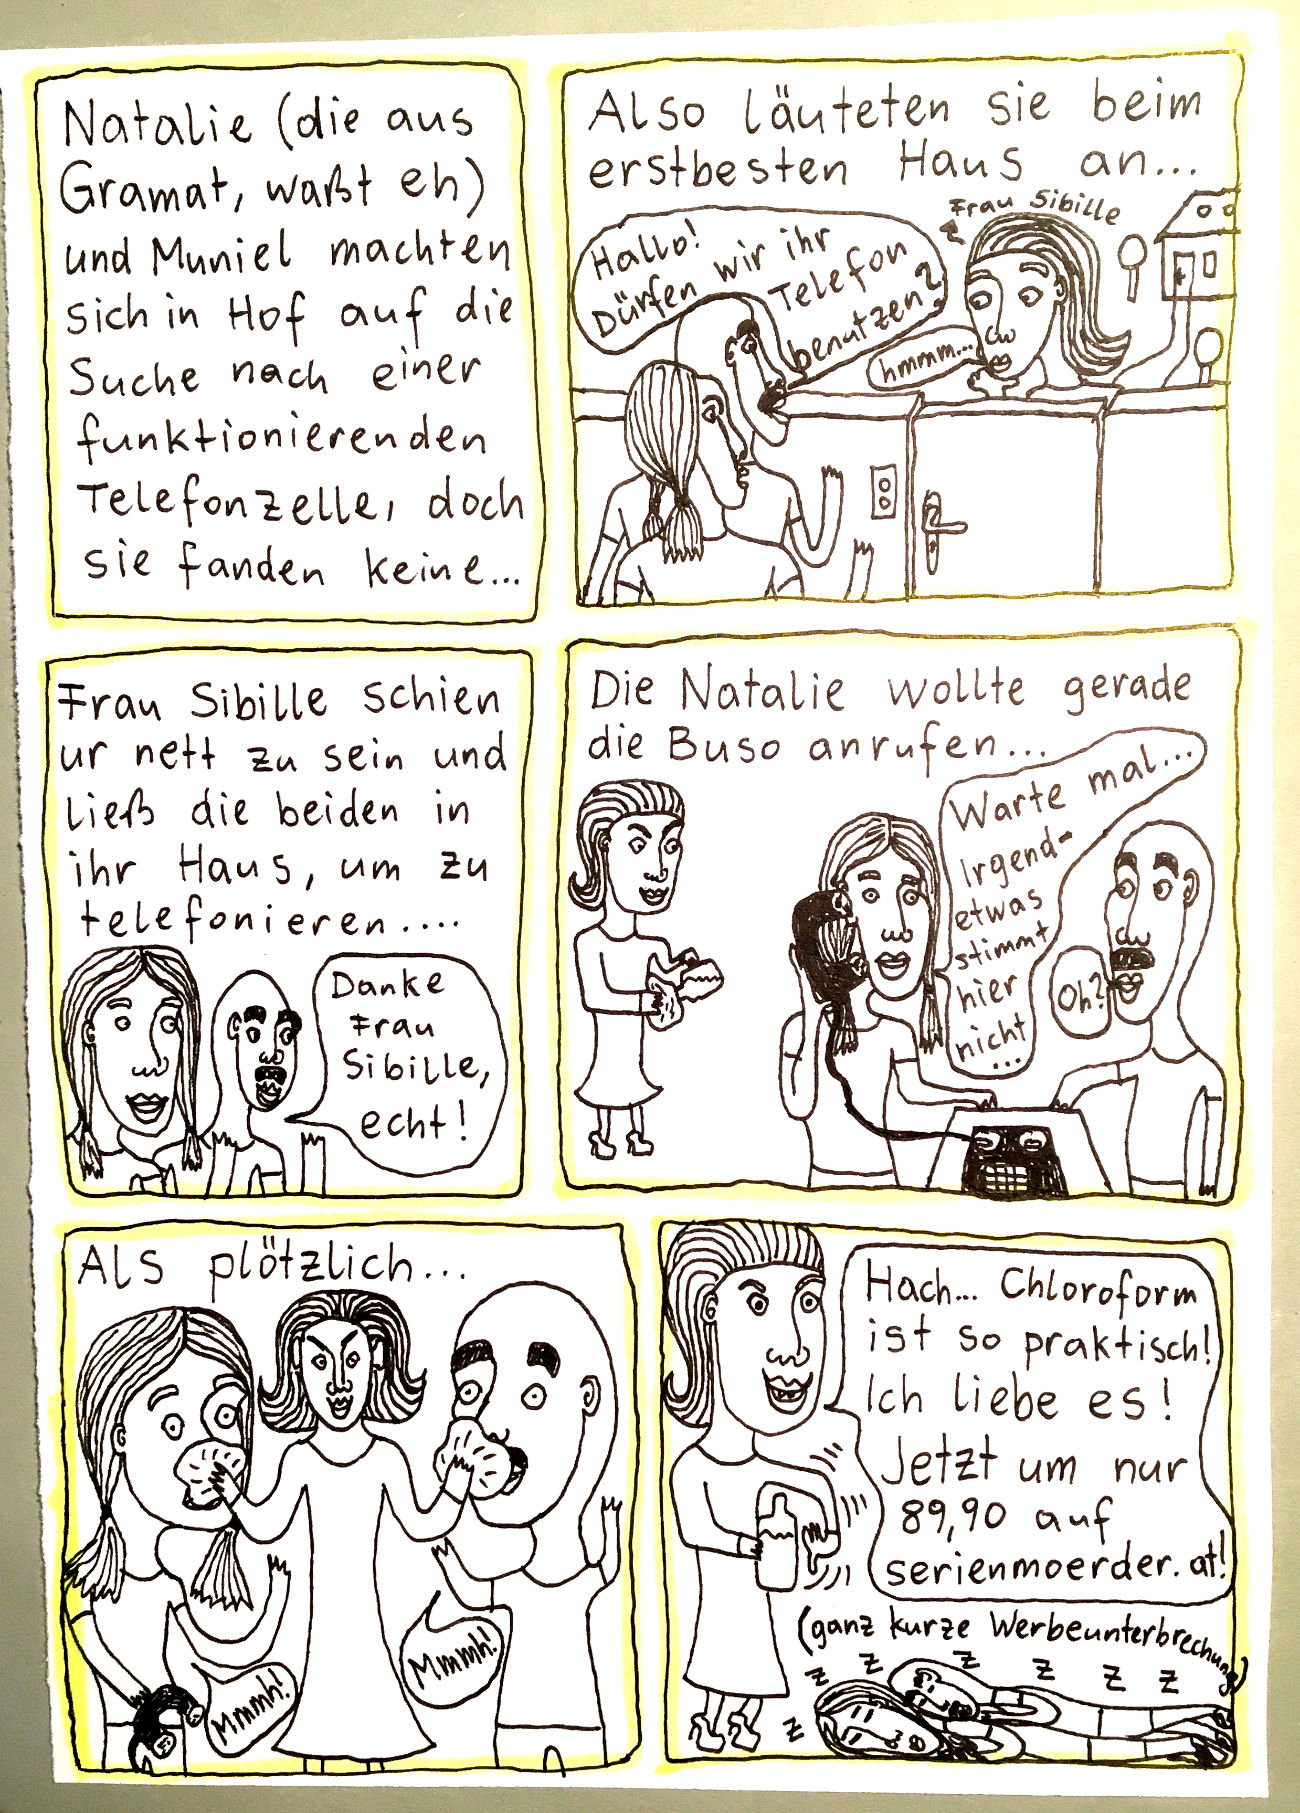 Natalie (die aus
Gramat, waßt eh)
und Muniel machten
sich in Hof auf die
Suche nach einer
funktionierenden
Telefonzelle, doch
sie fanden keine...
Also läuteten sie beim
erstbesten Haus an...
Frau Sibille
Hallo!
Dürfen wir ihr
Telefon
benutzen?
hmmm...
Frau Sibille schien
ur nett zu sein und
ließ die beiden in
ihr Haus, um zu
telefonieren....
Danke
Frau
Sibille,
echt!
Die Natalie wollte gerade
die Buso anrufen...
Warte mal...
Irgend-
etwas
stimmt
hier
nicht
...
Oh?
Als plötzlich...
Mmmh!
Mmmh!
Hach... Chloroform
ist so praktisch!
Ich liebe es!
Jetzt um nur
89,90 auf
serienmoerder.at!
(ganz kurze Werbeunterbrechung)
z z z z z z
z